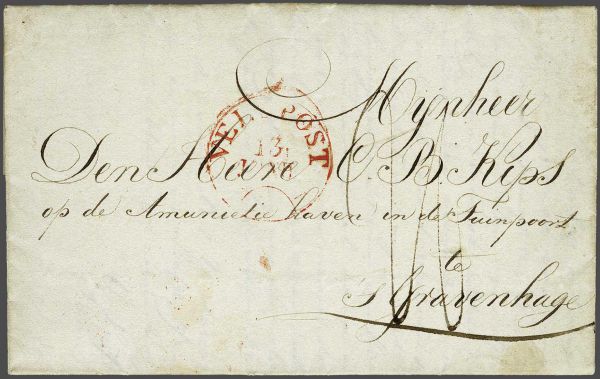 Mijnheer
VELDPOST
13
Den Heere C. B. Kips
op de Amunitie haven in de Tuinpoort
te
s Gravenhage